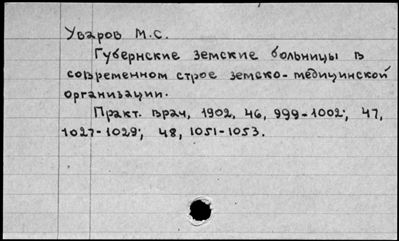 Уваров М.С.
Губернские земские больницы в
современном строе земско-медицинской
организации.
Практ. врач, 1902, 46, 999-1002; 47,
1027-1029; 48, 1051-1053.